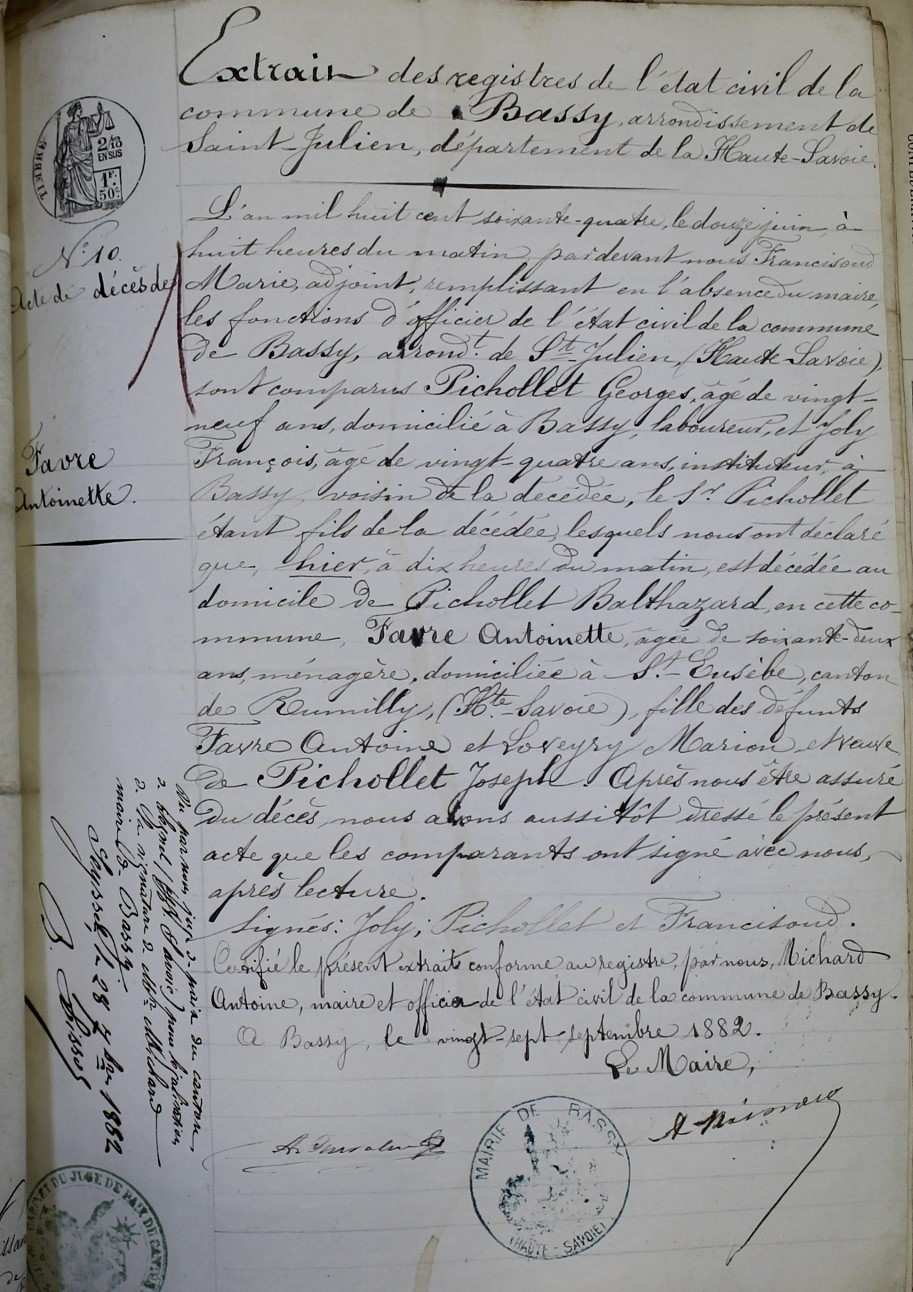 Extrait des registres de l'état civil de la
commune de Bassy, arrondissement de
Saint-Julien, département de la Haute-Savoie.
TIMBRE
2/10
EN SUS
1F.
50c
N° 10.
Acte de décès de
Favre
Antoinette.
L'an mil huit cent soixante-quatre, le douze juin, à
huit heures du matin, pardevant nous Francisoud
Marie, adjoint, remplissant en l'absence du maire,
les fonctions d'officier de l'état civil de la commune
de Bassy, arrondt. de St-Julien, (Haute-Savoie),
sont comparus Pichollet Georges, âgé de vingt-
neuf ans, domicilié à Bassy, laboureur, et Joly
François, âgé de vingt-quatre ans, instituteur, à
Bassy, voisin de la décédée, le Sr Pichollet
étant fils de la décédée, lesquels nous ont déclaré
que, hier, à dix heures du matin, est décédée au
domicile de Pichollet Balthazard, en cette co-
mmune, Favre Antoinette, âgée de soixante-deux
ans, ménagère, domiciliée à St-Eusèbe, canton
de Rumilly, (Hte-Savoie), fille des défunts
Favre Antoine et Loveyry Marion, et veuve
de Pichollet Joseph. Après nous être assuré
du décès, nous avons aussitôt dressé le présent
acte que les comparants ont signé avec nous,
après lecture.
Signés: Joly; Pichollet et Francisoud.
Certifié le présent extrait conforme au registre, par nous, Michard
Antoine, maire et officier de l'état civil de la commune de Bassy.
A Bassy, le vingt-sept-septembre 1882.
Le Maire,
MAIRIE DE BASSY
(HAUTE-SAVOIE)
Vu par nous juge de paix du canton
de Seyssel (Hte Savoie) pour légalisation
de la signature de Mr Michard
maire de Bassy.
Seyssel le 28 7bre 1882
DU JUGE DE PAIX DU CANTON